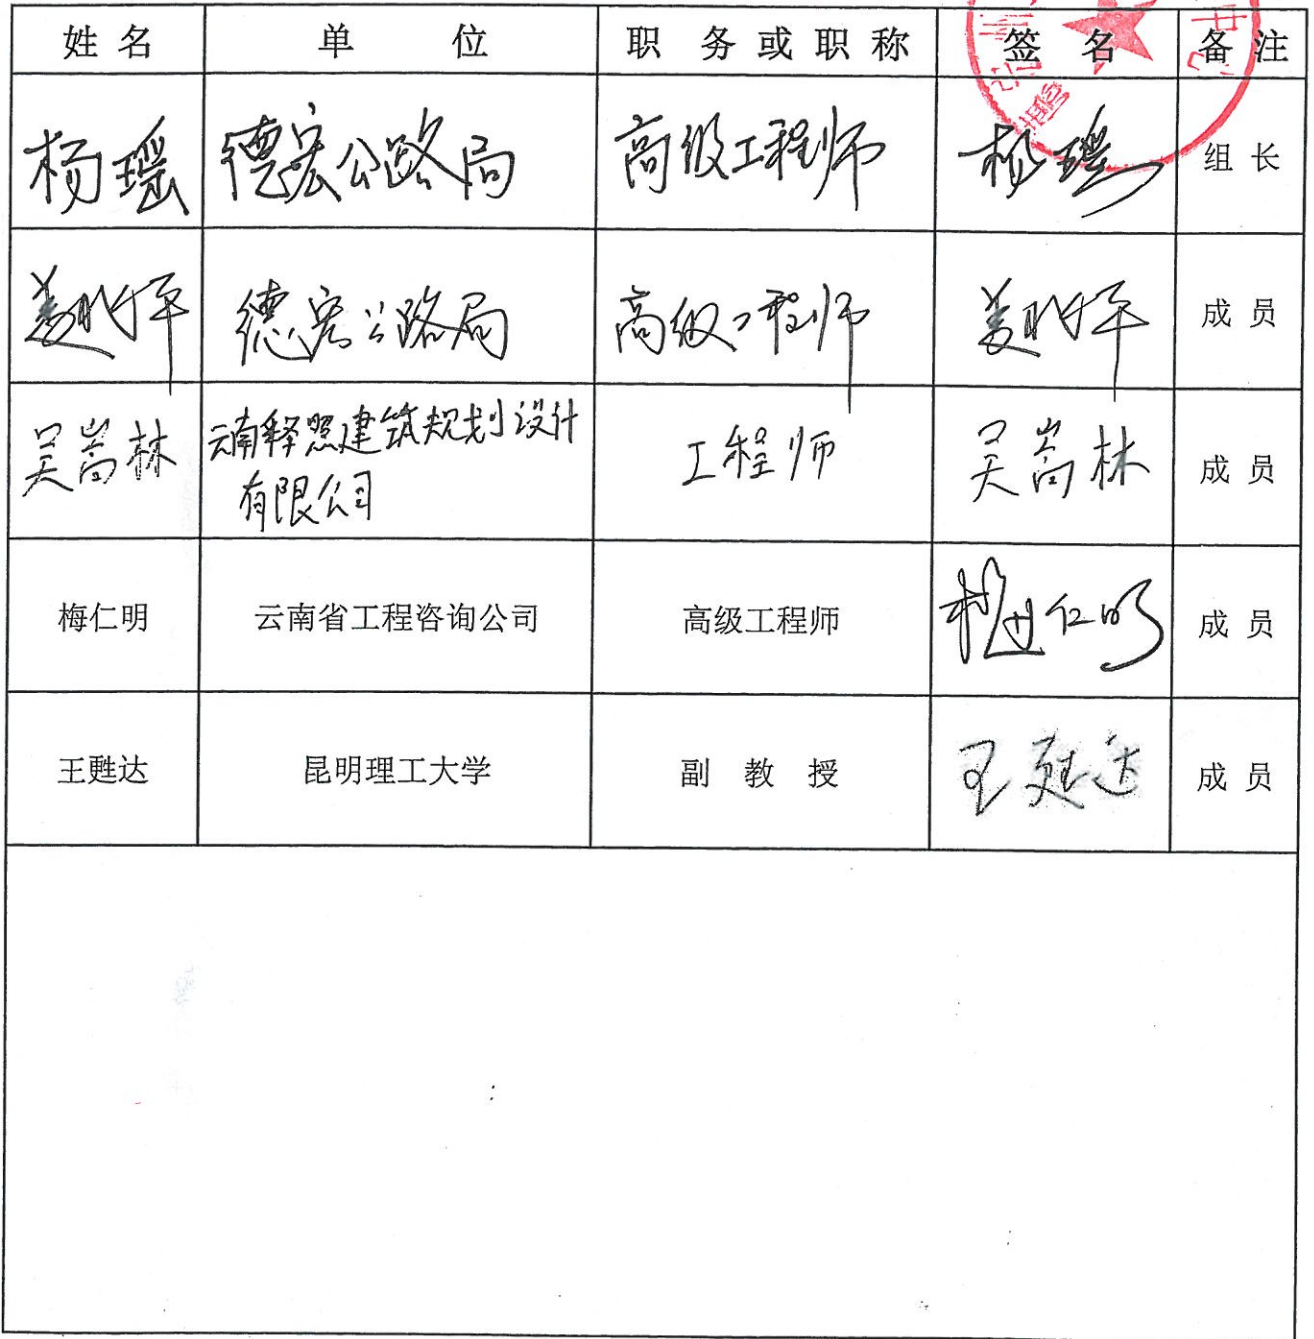 姓 名 单 位 职 务 或 职 称 签 名 备 注
杨瑶 德宏公路局 高级工程师 杨瑶 组 长
德宏公路局 高级工程师 成 员
吴嵩林 云南释照建筑规划设计 工程师 吴嵩林 成 员
有限公司
梅仁明 云南省工程咨询公司 高级工程师 梅仁明 成 员
王甦达 昆明理工大学 副 教 授 王甦达 成 员